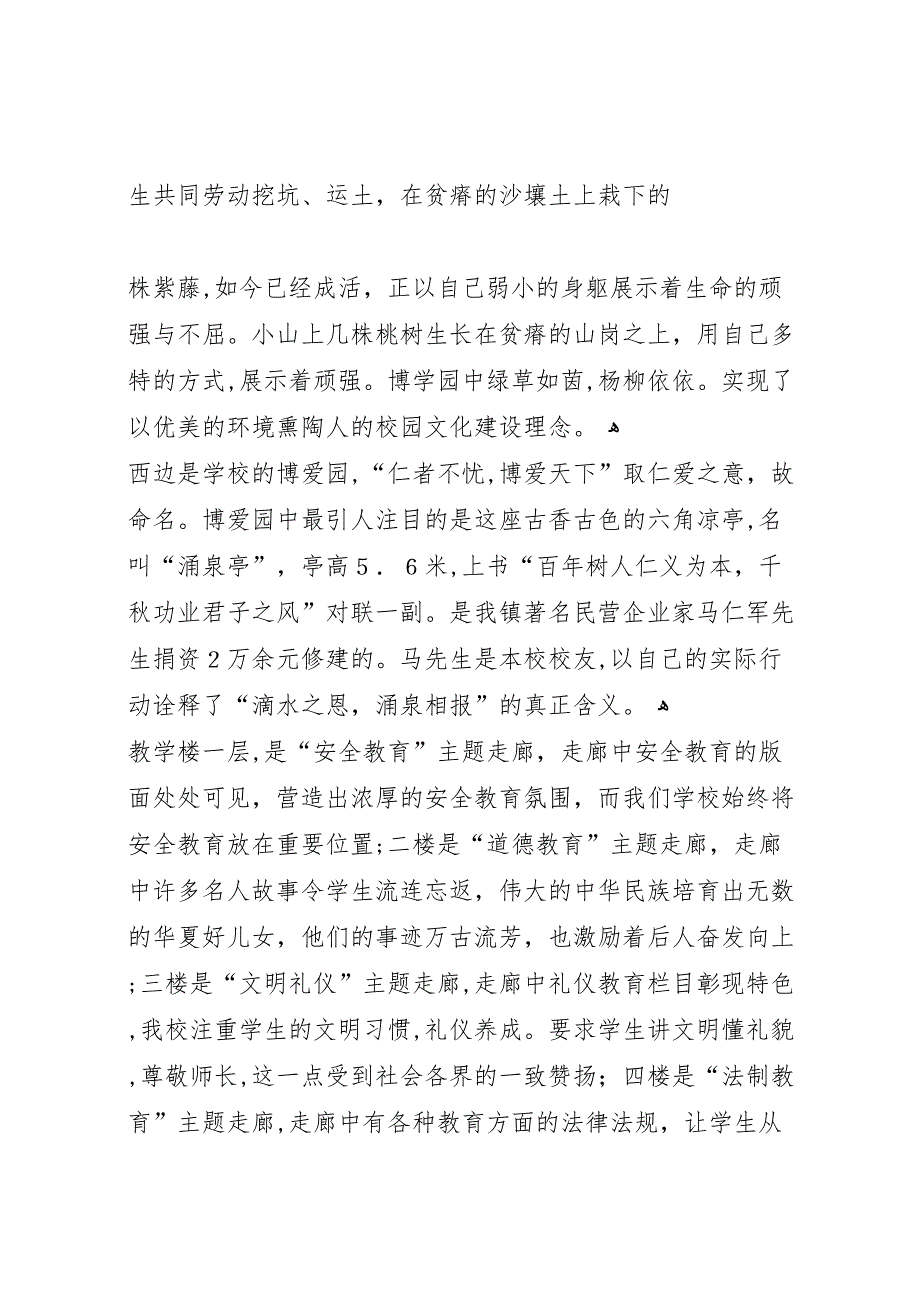 生共同劳动挖坑、运土，在贫瘠的沙壤土上栽下的
株紫藤,如今已经成活，正以自己弱小的身躯展示着生命的顽
强与不屈。小山上几株桃树生长在贫瘠的山岗之上，用自己多
特的方式,展示着顽强。博学园中绿草如茵,杨柳依依。实现了
以优美的环境熏陶人的校园文化建设理念。 ﻫ
西边是学校的博爱园,“仁者不忧,博爱天下”取仁爱之意，故
命名。博爱园中最引人注目的是这座古香古色的六角凉亭,名
叫“涌泉亭”，亭高５．６米,上书“百年树人仁义为本，千
秋功业君子之风”对联一副。是我镇著名民营企业家马仁军先
生捐资２万余元修建的。马先生是本校校友,以自己的实际行
动诠释了“滴水之恩，涌泉相报”的真正含义。 ﻫ
教学楼一层,是“安全教育”主题走廊，走廊中安全教育的版
面处处可见，营造出浓厚的安全教育氛围，而我们学校始终将
安全教育放在重要位置;二楼是“道德教育”主题走廊，走廊
中许多名人故事令学生流连忘返，伟大的中华民族培育出无数
的华夏好儿女，他们的事迹万古流芳，也激励着后人奋发向上
;三楼是“文明礼仪”主题走廊,走廊中礼仪教育栏目彰现特色
,我校注重学生的文明习惯,礼仪养成。要求学生讲文明懂礼貌
,尊敬师长,这一点受到社会各界的一致赞扬；四楼是“法制教
育”主题走廊,走廊中有各种教育方面的法律法规，让学生从